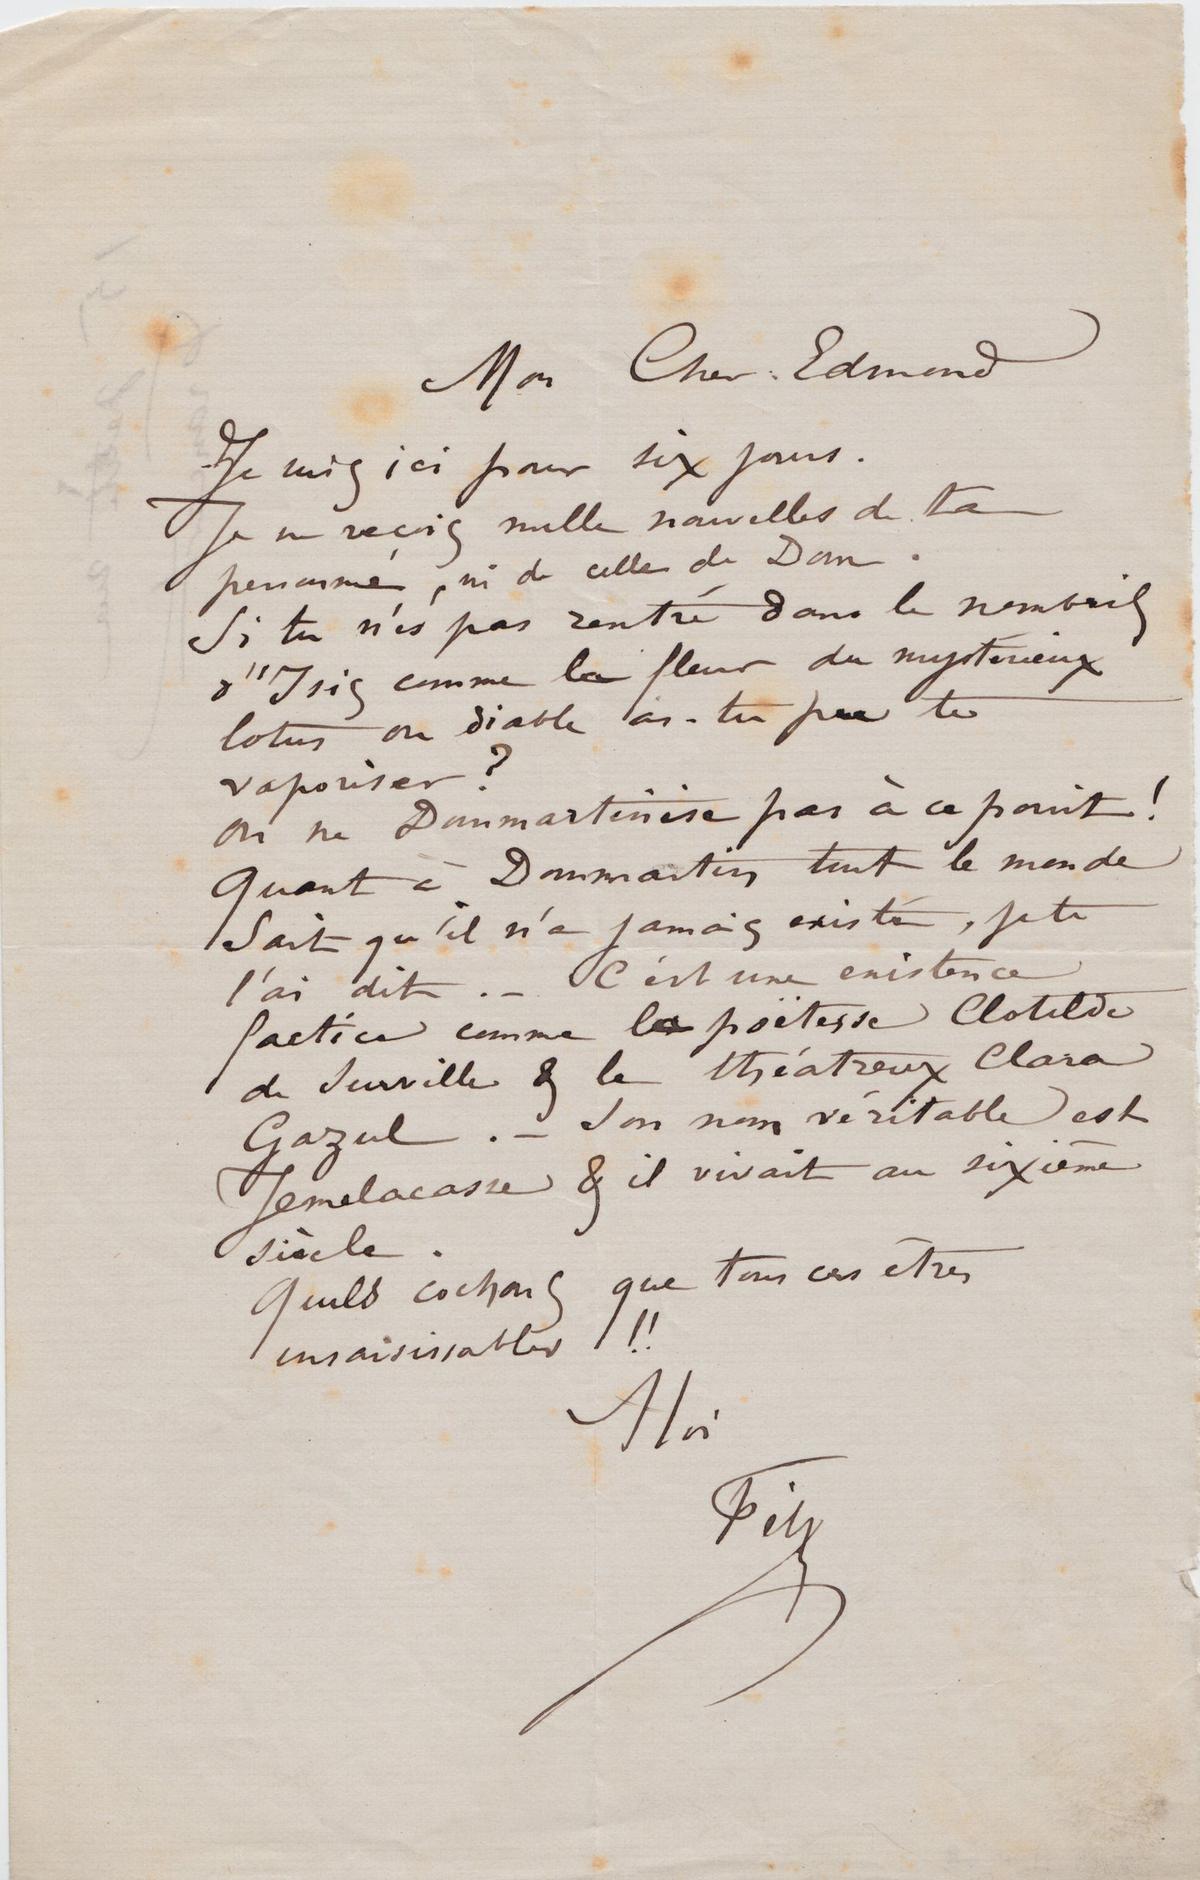 Mon Cher Edmond
Je suis ici pour six jours.
Je ne reçois nulle nouvelles de ta
personne, ni de celle de Dom.
Si tu n'es pas rentré dans le nombril
d'Isis comme la fleur du mystérieux
lotus ou diable as-tu pu te
vaporiser ?
on ne Dommartinise pas à ce point !
Quant à Dommartin tout le monde
Sait qu'il n'a jamais existé, je te
l'ai dit. – C'est une existence
factice comme la poëtesse Clotilde
de Surville & le théâtreux Clara
Gazul. – Son nom véritable est
Jemelacasse & il vivait au sixième
siècle.
Quels cochons que tous ces êtres
insaisissables !!
A toi
Fély